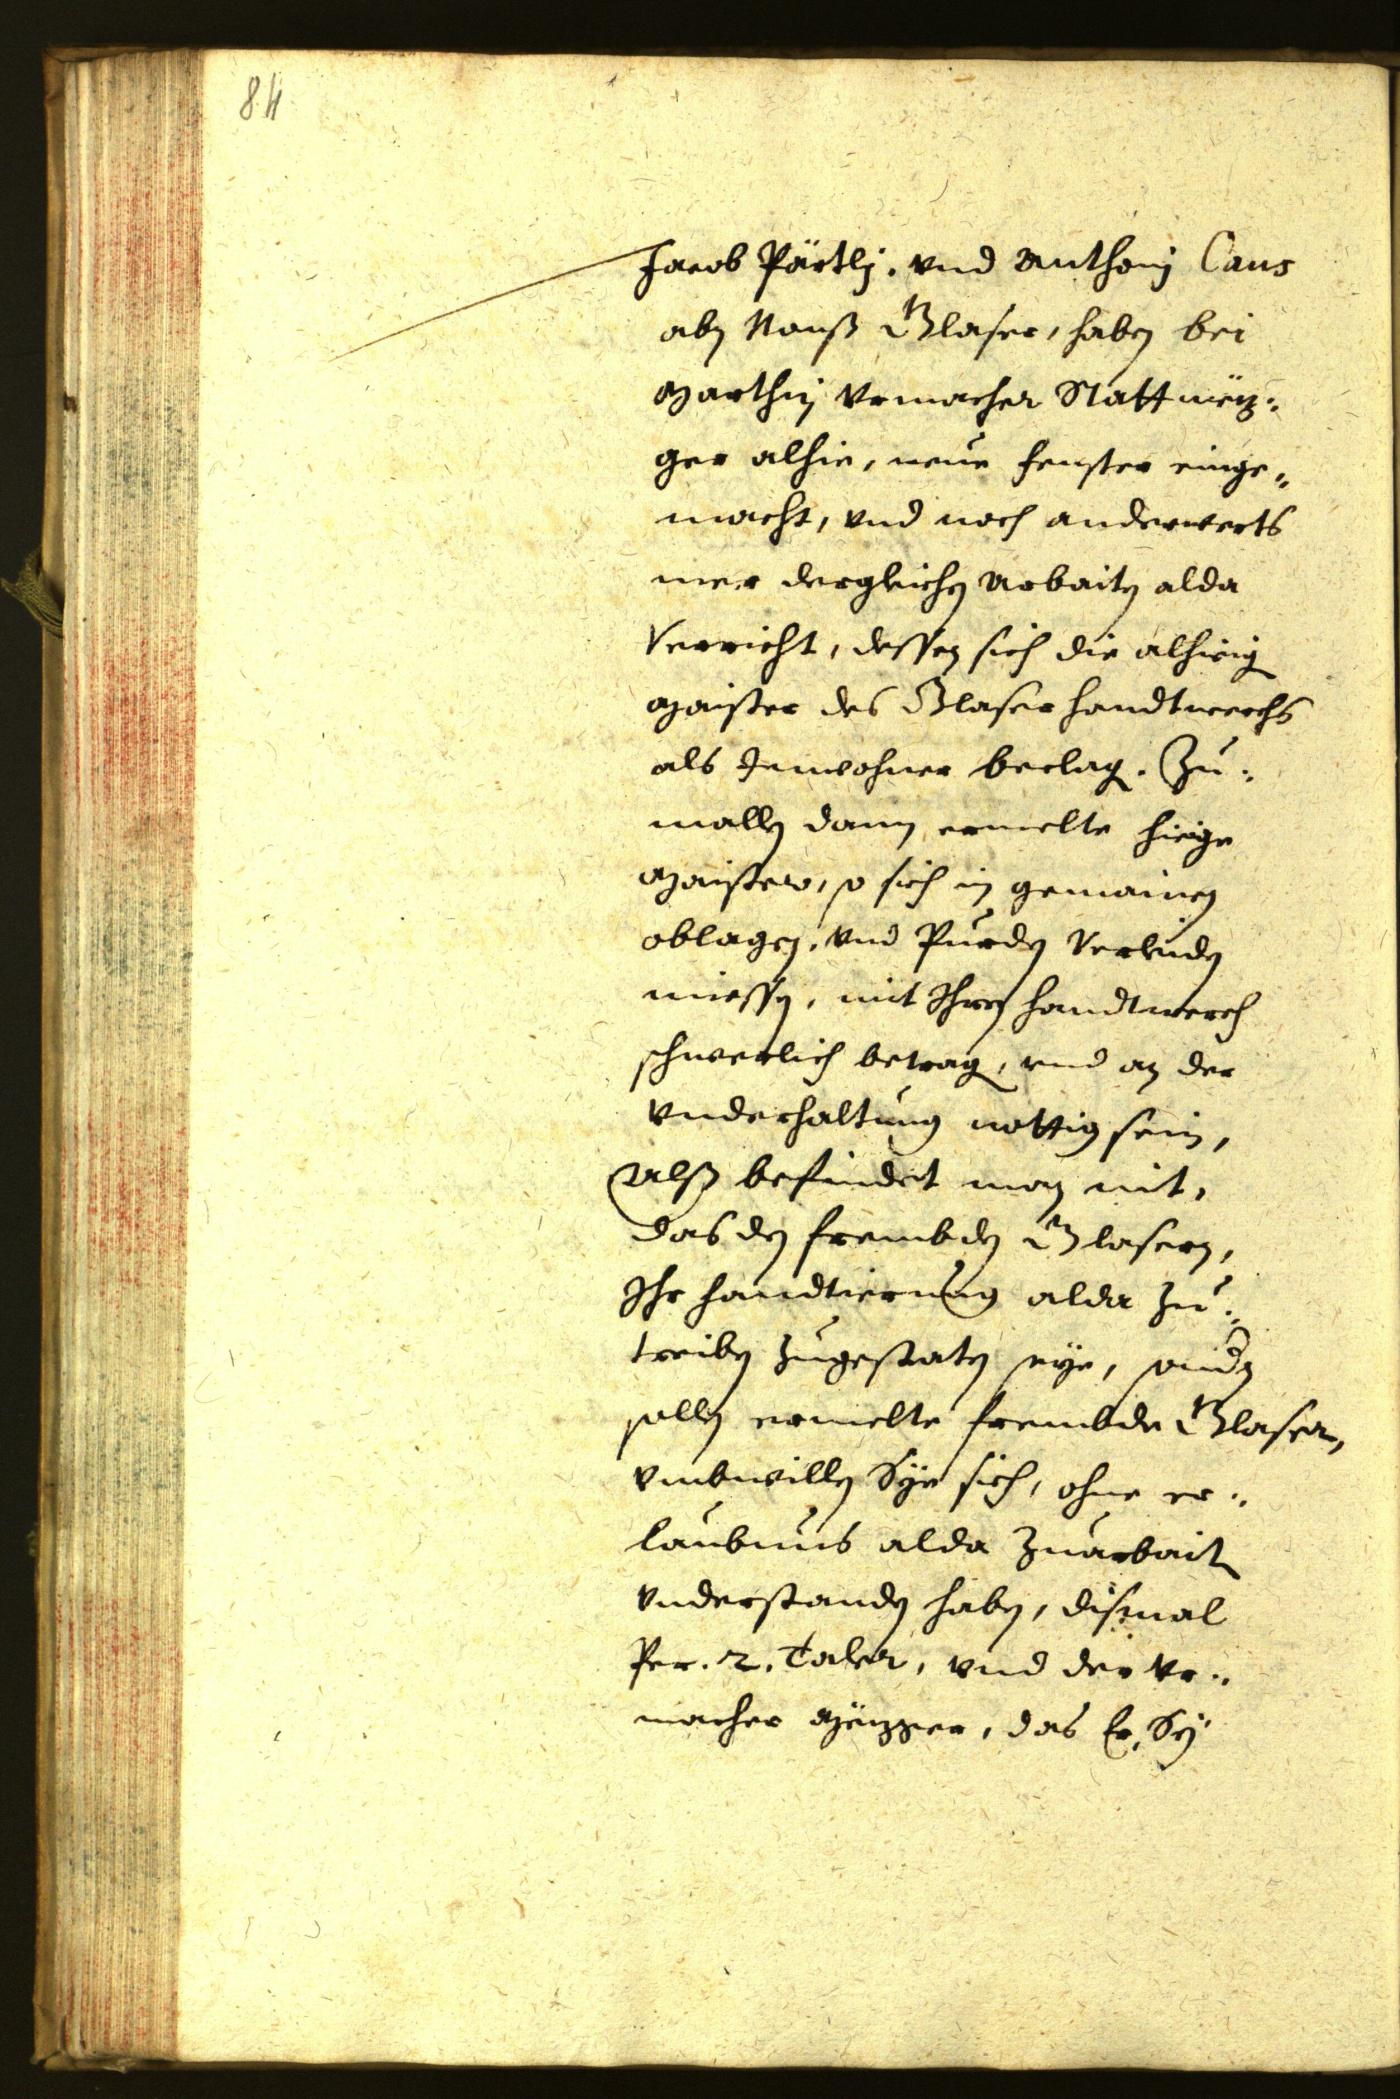 84
Jacob Pärtlj. vnd Anthonj Caus
abn Nonß Glaser, haben bei
Marthin Vrmacher Stattmëtz¬
ger alhie, neue fenster einge¬
macht, vnd noch anderwerts
mer dergleichen Arbaiten alda
Verricht, dessen sich die alhieig
Maister des Glaser handtwerchs
als Inwohner beclag. Zu¬
mallen dann ermelte hieige
Maister, so sich in gemainen
oblagen, vnd Purden Verleiden
miessen, mit Ihren handtwerch
schwerlich betrag, vnd an der
Vnderhaltung nottig sein,
Alß befindet man nit,
das den frembden Glasern,
Ihr handtierung alda zu¬
treiben zugestaten seye, sonder
sollen ermelte frembde Glaser,
vmbwillen Sÿe sich, ohne er¬
laubnus alda zuarbait
vnderstanden haben, dismal
Per. 2. Taler, vnd der Vr¬
macher Mëzger, das Er, Sÿ